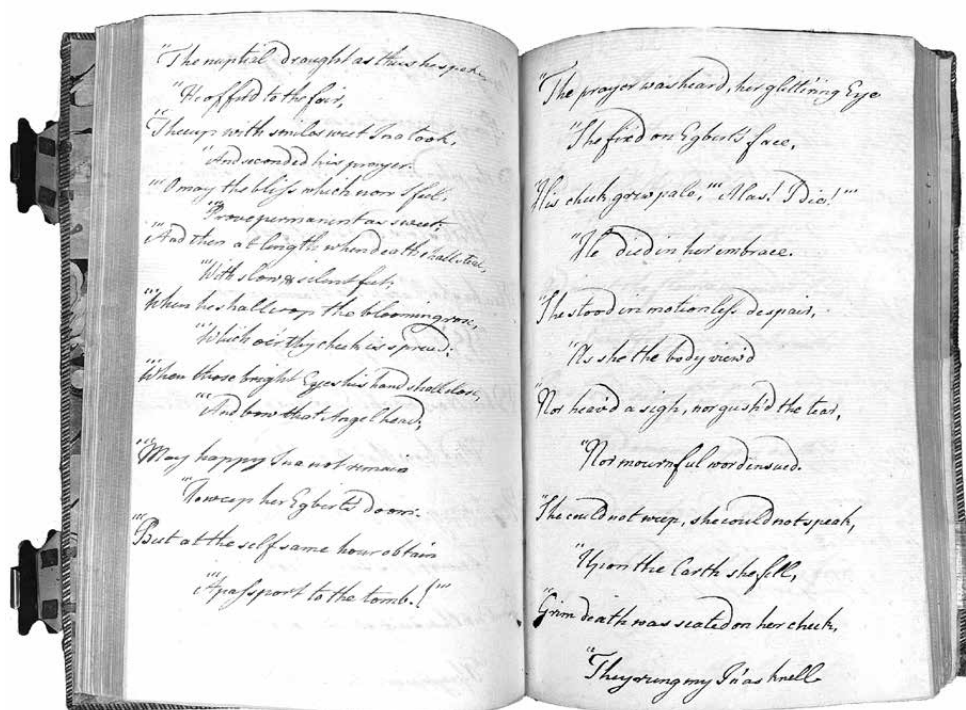 "The nuptial draught as thus he spoke
"He off'red to the fair,
"The cup with smiles sweet Ina took,
"And seconded his prayer.
"'O may the bliss which now I feel,
"'Prove permanent as sweet,
"'And then at length when death shall steal,
"'With slow & silent feet,
"'When he shall crop the blooming rose,
"'Which o'er thy cheek is spread,
"'When those bright Eyes his hand shall close,
"'And bow that Angel head,
"'May happy Ina not remain
"'To weep her Egbert's doom.
"'But at the self same hour obtain
"'A passport to the tomb.!"'
"The prayer was heard, her glitt'ring Eye
"She fix'd on Egbert's face,
"His cheek grew pale, "'Alas! I Die!"'
"He died in her embrace.
"She stood in motionless despair,
"As she the body view'd
"Nor heav'd a sigh, nor gush'd the tear,
"Nor mournful word ensued.
"She could not weep, she could not speak,
"Upon the Earth she fell,
"Grim death was seated on her cheek,
"They rung my Ina's knell